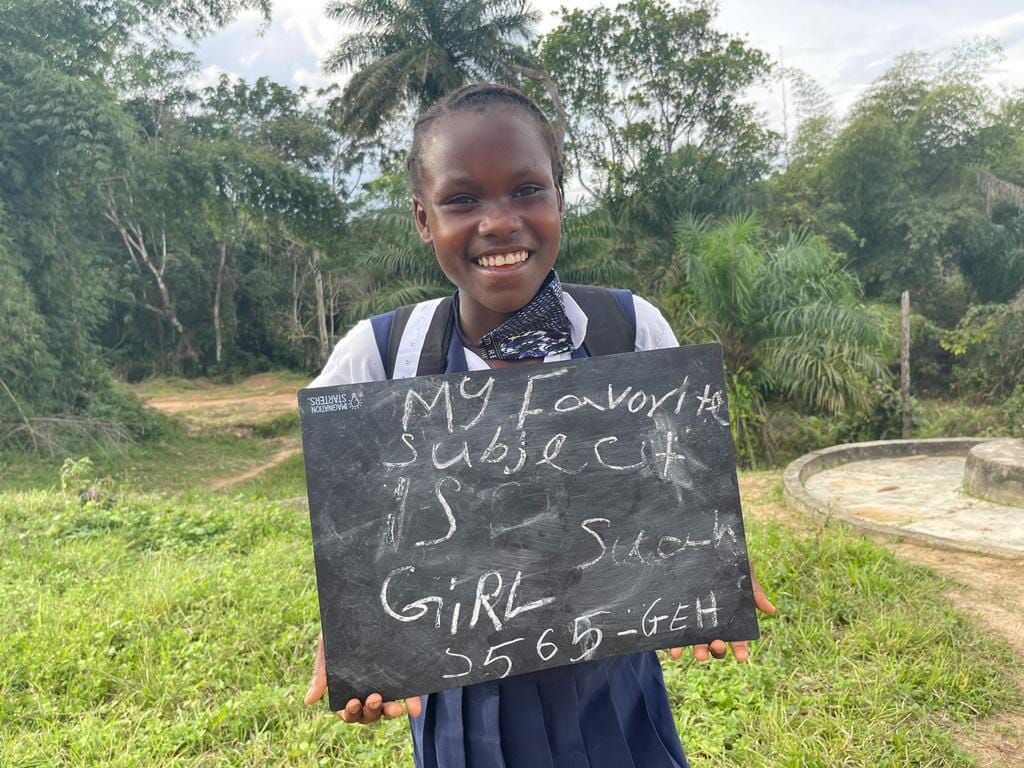 IMAGINATION
STARTERS
My Favorite
subject
is -
Suah
GiRL
5565-GEH